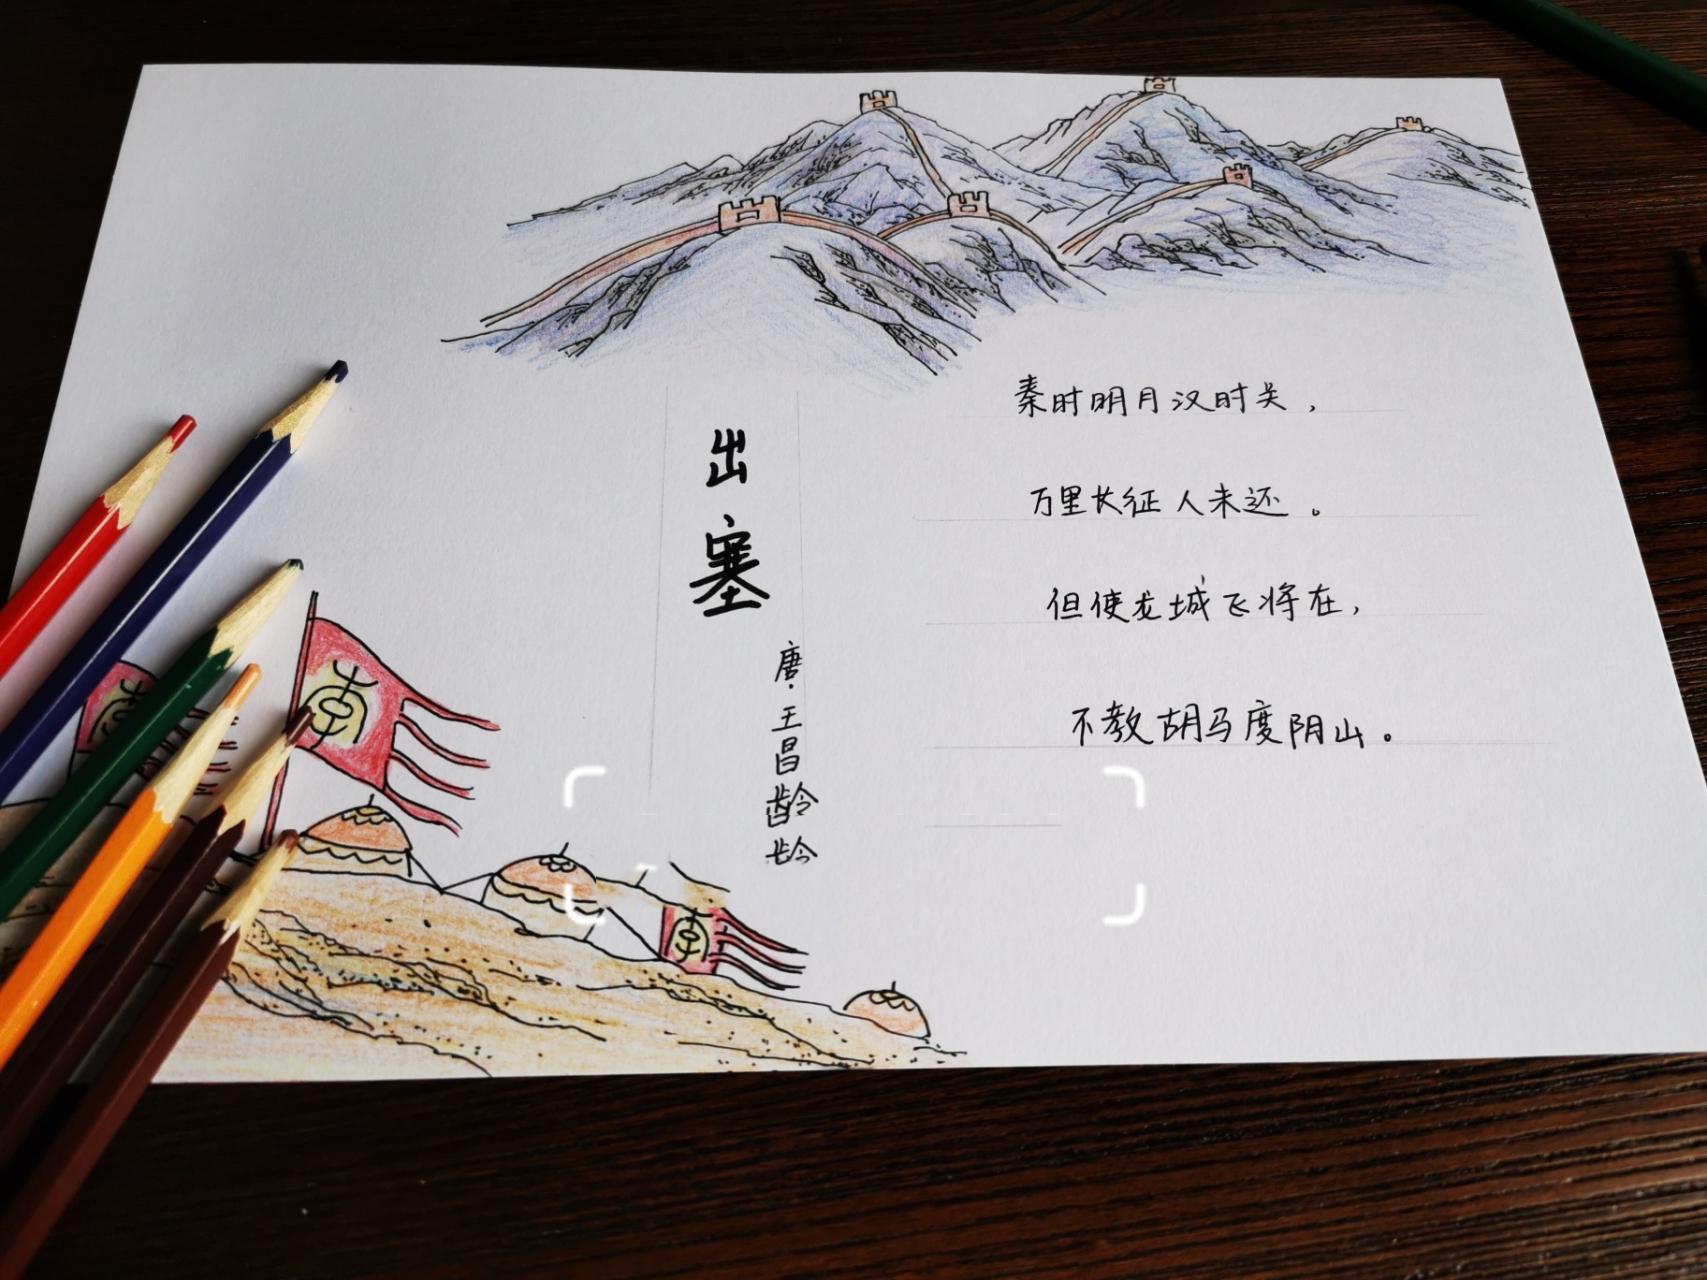 出塞
唐·王昌龄
秦时明月汉时关，
万里长征人未还。
但使龙城飞将在，
不教胡马度阴山。